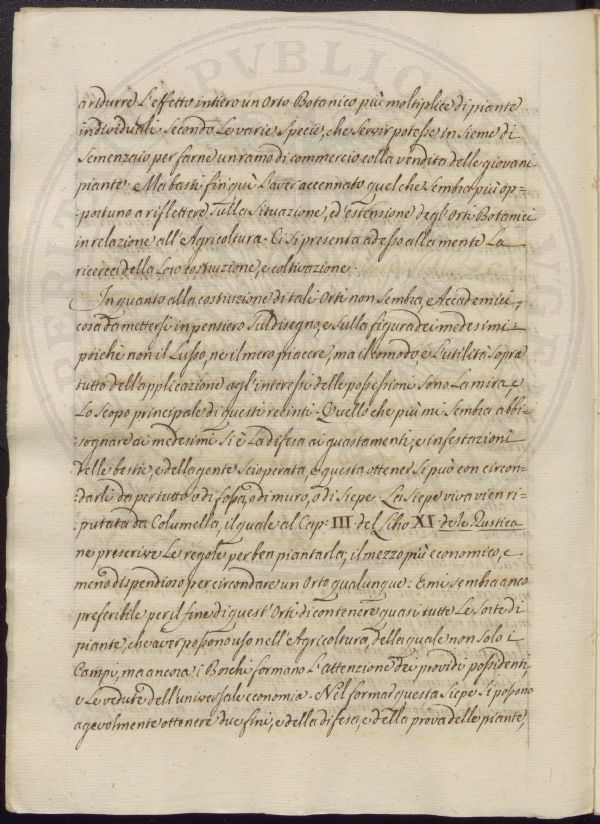 a ridurre L'effetto intiero un Orto Botanico più moltiplice di piante
individuali secondo Le varie specie, che servir potesse insieme di
Semenzaio per farne un ramo di commercio colla vendita delle giovani
piante. Ma basti fin quì L'aver accennato quel che sembra più op=
portuno a riflettere sulla Situazione, ed estensione degl'Orti Botanici
in relazione all'Agricoltura. Ci si presenta adesso alla mente La
ricerca della Loro costruzione, e coltivazione.
In quanto alla costruzione di tali Orti non sembra, o Accademici,
cosa da mettersi in pensiero sul disegno, e sulla figura dei medesimi:
poichè non il Lusso, nè il mero piacere, ma il comodo, e L'utilità sopra
tutto dell'applicazione agl'interessi delle possessioni sono La mira, e
Lo scopo principale di questi recinti. Quello che più mi sembra abbi=
sognare ai medesimi si è La difesa ai guastamenti, e infestazioni
delle bestie, e della gente scioperata, e questa ottener si può con circon=
darli da per tutto o di fossa, o di muro, o di siepe. La siepe viva vien ri=
putata da Columella, il quale al Cap: III. del Libo XI. de re Rustica
ne prescrive Le regole per ben piantarla, il mezzo più economico, e
meno dispendioso per circondare un Orto qualunque: E mi sembra anco
preferibile per il fine di quest'Orti di contenere quasi tutte Le sorte di
piante, che aver possono uso nell'Agricoltura, della quale non solo i
Campi, ma ancora i Boschi formano L'attenzione dei providi possidenti,
e Le vedute dell'universale economia. Nel formar questa siepe si possono
agevolmente ottenere due fini, e della difesa, e della prova delle piante,